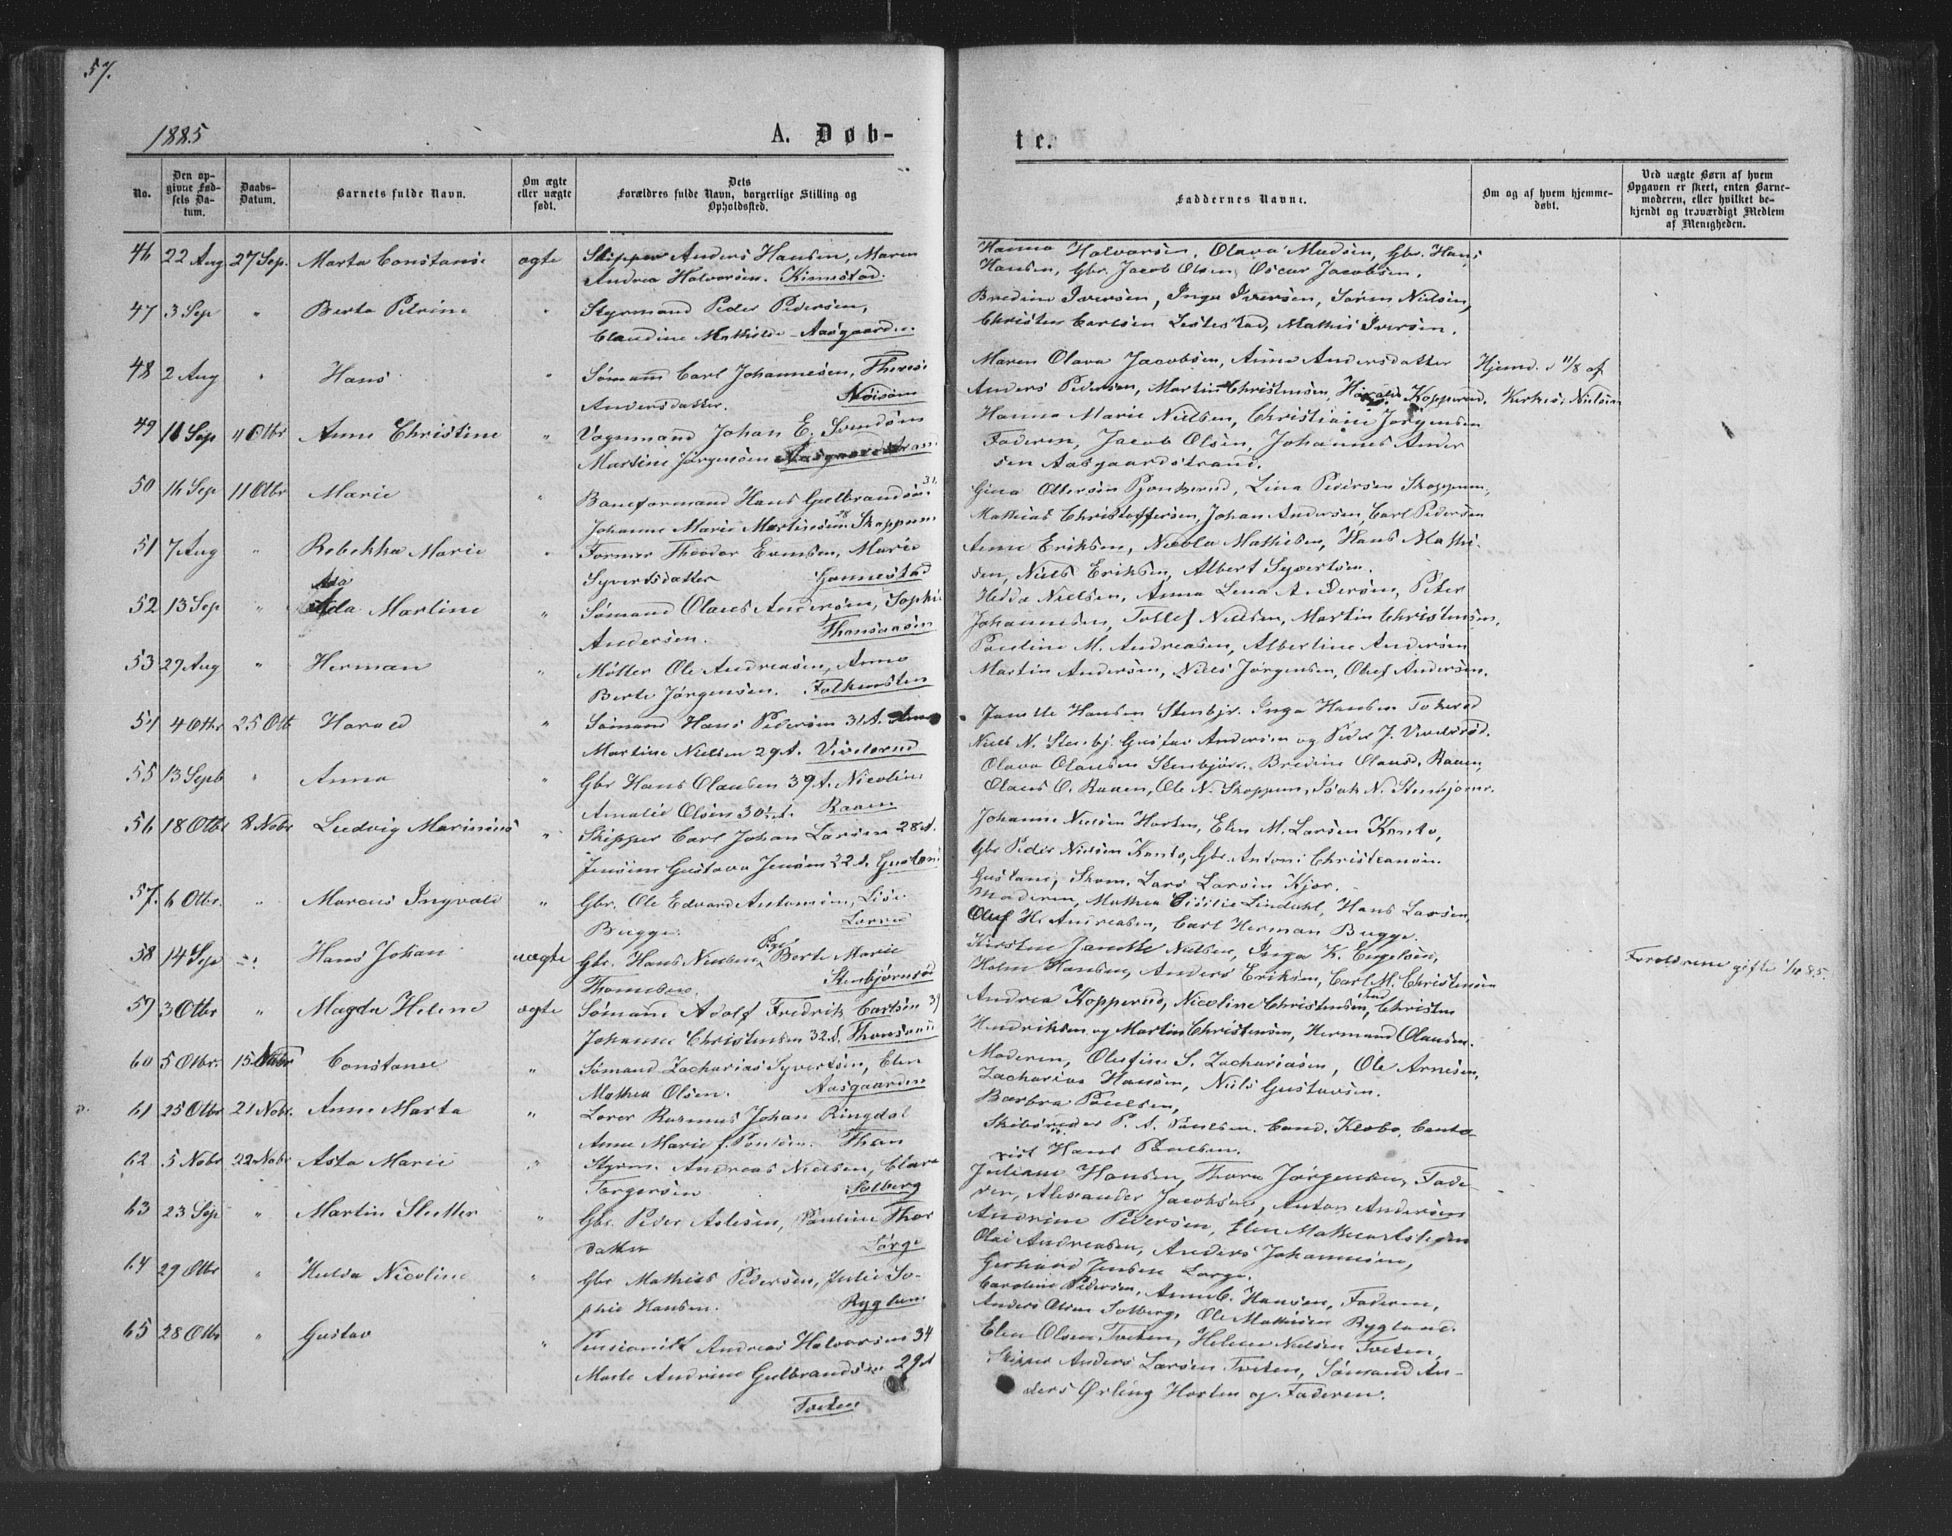 57.
1885
A. Døb-
te.
No.
Den opgivne Fødsels Datum.
Daabs-Datum.
Barnets fulde Navn.
Om ægte eller uægte født.
Dets Forældres fulde Navn, borgerlige Stilling og Opholdssted.
Faddernes Navne.
Om og af hvem hjemmedøbt.
Ved uægte Børn af hvem Opgaven er skeet, enten Barnemoderen, eller hvilket bekjendt og troværdigt Medlem af Menigheden.
46 22 Aug 27 Sep. Marta Constanse ægte Skipper Anders Hansen, Maren
Andrea Halvorsen. Kinnestad.
Hanna Halvorsen, Olava Madsen, Gbr. Hans
Hansen, Gbr. Jacob Olsen, Oscar Jacobsen.
47 3 Sep " Berta Petrine " Styrmand Peder Pedersen,
Claudine Mathilde Aasgaarden.
Bredine Iversen, Inga Iversen, Søren Nielsen,
Christen Carlsen, Mathis Iversen.
48 2 Aug " Hans " Sømann Carl Johannesen, Therese
Andersdatter. Nøisom
Maren Olava Jacobsen, Anna Andersdatter
Anders Pedersen, Martin Christensen, Harald Kopperud.
Hjemd. d 11/8 af
Nielsen
49 18 Sep 4 Otbr Anne Christine " Vognmand Johan E. Svendsen
Martine Jørgensen Aasgaardstran
Hanna Marie Nielsen, Christiane Jørgensen
Faderen, Jacob Olsen, Johannes Ander
sen Aasgaardstrand.
50 16 Sep 11 Otbr Marie " Baneformand Hans Gulbrandsen 31.
Johanne Marie Martinsen 28 Skoppum
Gina Ottersen, Lina Pedersen Skoppum,
Mathias Christoffersen, Johan Andersen, Carl Pedersen
51 7 Aug " Rebekka Marie " Former Theodor Evensen, Marie
Syvertsdatter Gannestad
Anne Eriksen, Nicola Mathisen, Hans Mathi-
sen, Niels Eriksen, Albert Syvertsen.
52 13 Sep " Ada
Ada Martine " Sømand Olaus Andersen, Sophie
Andersen. Thonsaasen
Hedda Nielsen, Anna Lena A. Pedersen, Peter
Johannesen, Tollef Nielsen, Martin Christensen.
53 29 Aug " Herman " Møller Ole Andreasen, Anna
Berte Jørgensen. Falkensten
Pauline M. Andreasen, Albertine Andersen
Martin Andersen, Niels Jørgensen, Oluf Andersen.
54 4 Otbr 25 Otb Harald " Sømand Hans Pedersen 31 A. Anne
Martine Nielsen 29 A. Viulsrud
Janette Hansen Stenbjr. Inga Hansen
Niels N. Stenbj. Gustav Andersen og Peder J.
55 13 Septb " Anna " Gbr Hans Olausen 39 A. Nicoline
Amalie Olsen 30 A. Raaen
Olava Olausen Stenbjør. Bredine Olausd. Raaen,
Olaus O. Raaen, Ole N. Skoppum, Isak N.
56 18 Otbr 8 Nobr Ludvig Marinius " Skipper Carl Johan Larsen 28 A.
Jensine Gustava Jensen 22 A.
Johanne Nielsen Horten, Elen M. Larsen Kanto,
Gbr Peder Nielsen Kanto, Gbr. Antoni Christiansen.
Lars Larsen Kjær.
57. 6 Otbr. " Marcus Ingvald " Gbr. Ole Edvard Antonsen, Lise
Bugge.
Moderen, Mathea Cisilie Lindahl, Hans Larsen,
Oluf H. Andreasen, Carl Herman Bugge.
58 14 Sep " Hans Johan uægte Gbr. Hans Nielsen, Pige Berte Marie
Thomesen. Stenbjørnsrød
Kirstine Janette Nielsen, Inga K. Engelsen,
Holm Hansen, Anders Eriksen, Carl M. Christensen
Forældrene gifte 85
59 3 Otbr " Magda Helene ægte Sømann Adolf Fredrik Carlsen 39
Johanne Christensen 32 A.
Andrea Kopperud, Nicoline Christensen, Christen
Hendriksen og Martin Christensen, Hermand Olausen.
60 5 Otbr. 15 Nobr Constanse " Sømand Zacharias Syvertsen, Elen
Mathea Olsen. Aasgaarden
Moderen, Olufine S. Zachariasen, Ole Arnesen,
Zacharias Hansen, Niels Gustavsen.
61 25 Otbr 21 Nobr. Anne Marta " Lærer Rasmus Johan Ringdal
Anne Marie f. Poulsen. Than
Barbra Poulsen,
Skibsreder P. A. Poulsen. Cand. Klobo, Canto-
rist Hans Poulsen.
62 5 Nobr 22 Nobr Asta Marie " Styrm. Andreas Nielsen, Clara
Torgersen Solberg
Juliane Hansen, Thora Jørgensen, Fade-
ren, Alexander Jacobsen, Anton Andersen
63 23 Sep " Martin Slutter " Gbr. Peder Aslesen, Pauline Thor
datter Lørge
Andrine Pedersen, Elen Mathea Aslesen
Olai Andreasen, Anders Johannesen,
Gerhard Jensen Lørge.
64 29 Otbr " Hulda Nicoline " Gbr Mathias Pedersen, Julie So-
phie Hansen. Rygland
Caroline Pedersen, Anne C. Hansen, Faderen,
Anders Olsen Solberg, Ole Mathisen Rygland.
65 28 Otbr " Gustav " Andreas Halvorsen 34
Marte Andrine Gulbrandsen 29 A
Tveten
Elen Olsen Tveten, Helene Nielsen Tveten,
Skipper Anders Larsen Tveten, Sømand An-
ders Ørling Horten og Faderen.